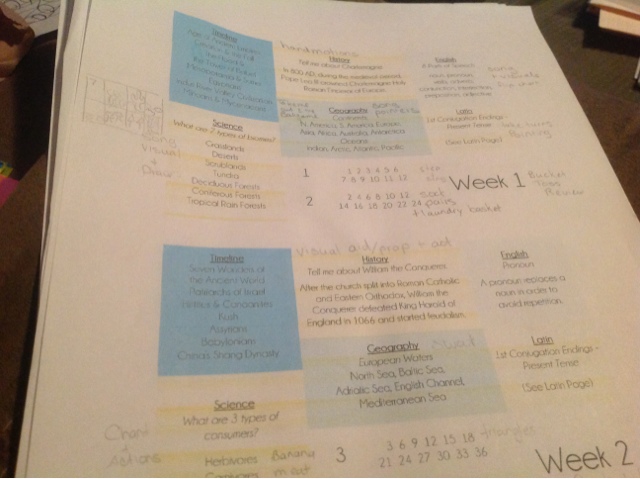 Timeline
Age of Ancient Empires
Creation & the Fall
The Flood &
The Tower of Babel
Mesopotamia & Sumer
Egyptians
Indus River Valley Civilization
Minoans & Mycenaeans
hand motions
History
Tell me about Charlemagne.
In 800 AD, during the medieval period,
Pope Leo III crowned Charlemagne Holy
Roman Emperor of Europe.
English
8 Parts of Speech
noun, pronoun,
verb, adverb,
conjunction, interjection,
preposition, adjective
Science
What are 7 types of biomes?
Grasslands
Deserts
Scrublands
Tundra
Deciduous Forests
Coniferous Forests
Tropical Rain Forests
Song
Visual
+
Draw
Geography
Continents
N. America, S. America, Europe,
Asia, Africa, Australia, Antarctica
Oceans
Indian, Arctic, Atlantic, Pacific
Song
Latin
1st Conjugation Endings -
Present Tense
(See Latin Page)
1
1 2 3 4 5 6
7 8 9 10 11 12
2
2 4 6 8 10 12
14 16 18 20 22 24
sock
pairs
+ laundry basket
Week 1
Bucket
Toss
Review
Timeline
Seven Wonders of
the Ancient World
Patriarchs of Israel
Hittites & Canaanites
Kush
Assyrians
Babylonians
China's Shang Dynasty
Visual aid/prop + act
History
Tell me about William the Conqueror.
After the church split into Roman Catholic
and Eastern Orthodox, William the
Conqueror defeated King Harold of
England in 1066 and started feudalism.
English
Pronoun
A pronoun replaces a
noun in order to
avoid repetition.
Geography
European Waters
North Sea, Baltic Sea,
Adriatic Sea, English Channel,
Mediterranean Sea
Latin
1st Conjugation Endings -
Present Tense
(See Latin Page)
Science
What are 3 types of
consumers?
Herbivores
Carnivores
Chant
+
Actions
Banana
meat
3
3 6 9 12 15 18
21 24 27 30 33 36
triangles
Week 2